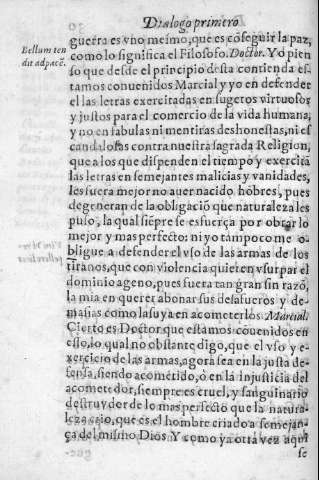 Dialogo primero
guerra es vno mesmo, que es cõseguir la paz,
Bellum ten
dit ad pacẽ.
como lo significa el Filosofo. Doctor. Yo pien
so que desde el principio desta contienda es
tamos conuenidos Marcial y yo en defender
el las letras exercitadas en sugetos virtuosos
y justos para el comercio de la vida humana,
y no en fabulas ni mentiras deshonestas, ni es
candalosas contra nuestra sagrada Religion,
que a los que dispenden el tiempo y exercitã
las letras en semejantes malicias y vanidades,
les fuera mejor no auer nacido hõbres, pues
degeneran de la obligaciõ que naturaleza les
puso, la qual siẽpre se esfuerça por obrar lo
mejor y mas perfecto; ni yo tampoco me o-
bligue a defender el vso de las armas de los
tiranos, que con violencia quieren vsurpar el
dominio ageno, pues fuera tan gran sin razõ,
la mia en querer abonar sus desafueros y de-
masias como la suya en acometerlos. Marcial.
Cierto es Doctor que estamos cõuenidos en
esso, lo qual no obstante digo, que el vso y e-
xercicio de las armas, agora sea en la justa de-
fensa, siendo acometido, ò en la injusticia del
acometedor, siempre es cruel, y sanguinario
destruydor de lo mas perfecto que la natura-
leza crio, que es el hombre criado a semejan-
ça del mismo Dios. Y como ya otra vez aqui
se